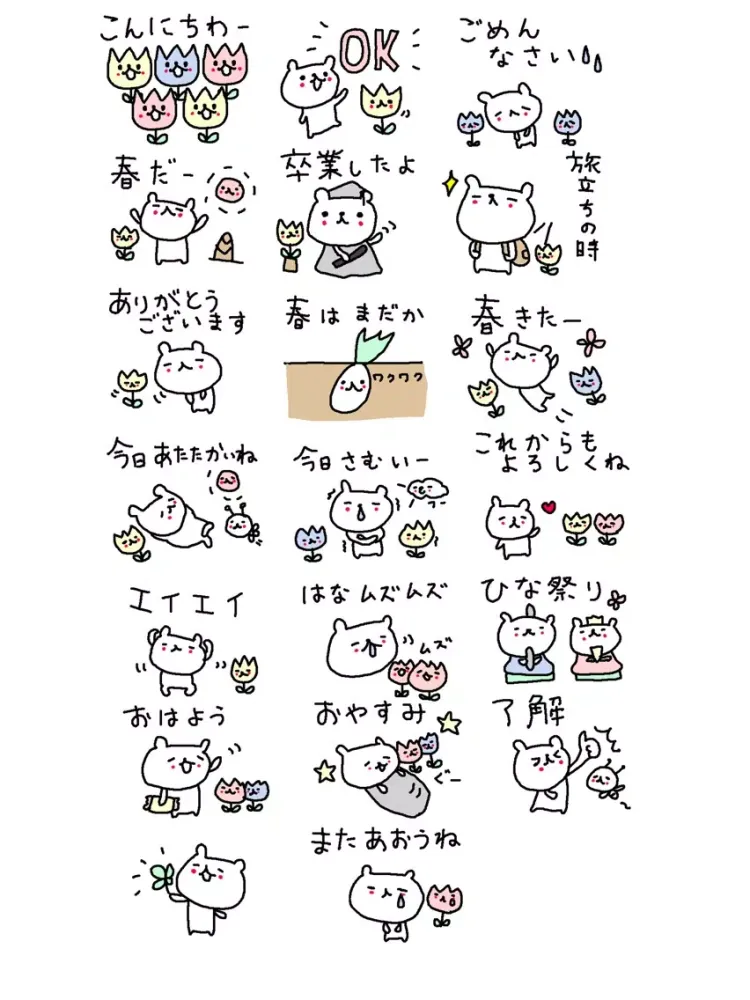 こんにちわー
OK
ごめん
なさい
春だー
卒業したよ
旅立ちの時
ありがとう
ございます
春はまだか
ワクワク
春きたー
今日あたたかいね
今日さむいー
フー
これからも
よろしくね
エイエイ
はなムズムズ
ムズ
ひな祭り
おはよう
おやすみ
ぐー
了解
またあおうね